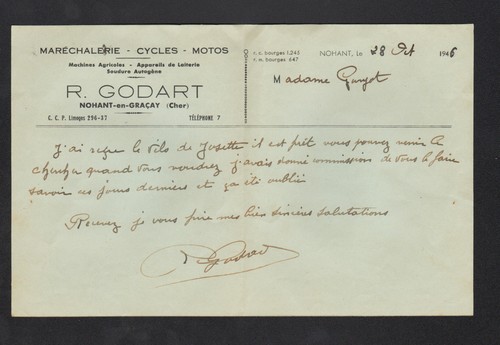 MARÉCHALERIE - CYCLES - MOTOS
Machines Agricoles - Appareils de Laiterie
Soudure Autogène
R. GODART
NOHANT-en-GRAÇAY (Cher)
C. C. P. Limoges 296-37 TÉLÉPHONE 7
r. c. bourges 1.243
r. m. bourges 647
NOHANT, Le 28 Oct 1946
Madame
J'ai reçu le vélo de Josette il est prêt vous pouvez venir le
chercher quand vous voudrez j'avais donné commission de vous le faire
savoir ces jours derniers et ça été oublié
Recevez je vous prie mes bien sincères salutations
R Godart